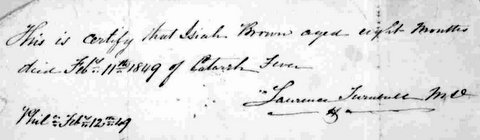 This is certify that Isiah Brown aged eight Months
died Feby 11th 1849 of Catarrh Fever
Laurence Turnbull M.D
Phila Feby 12th 49